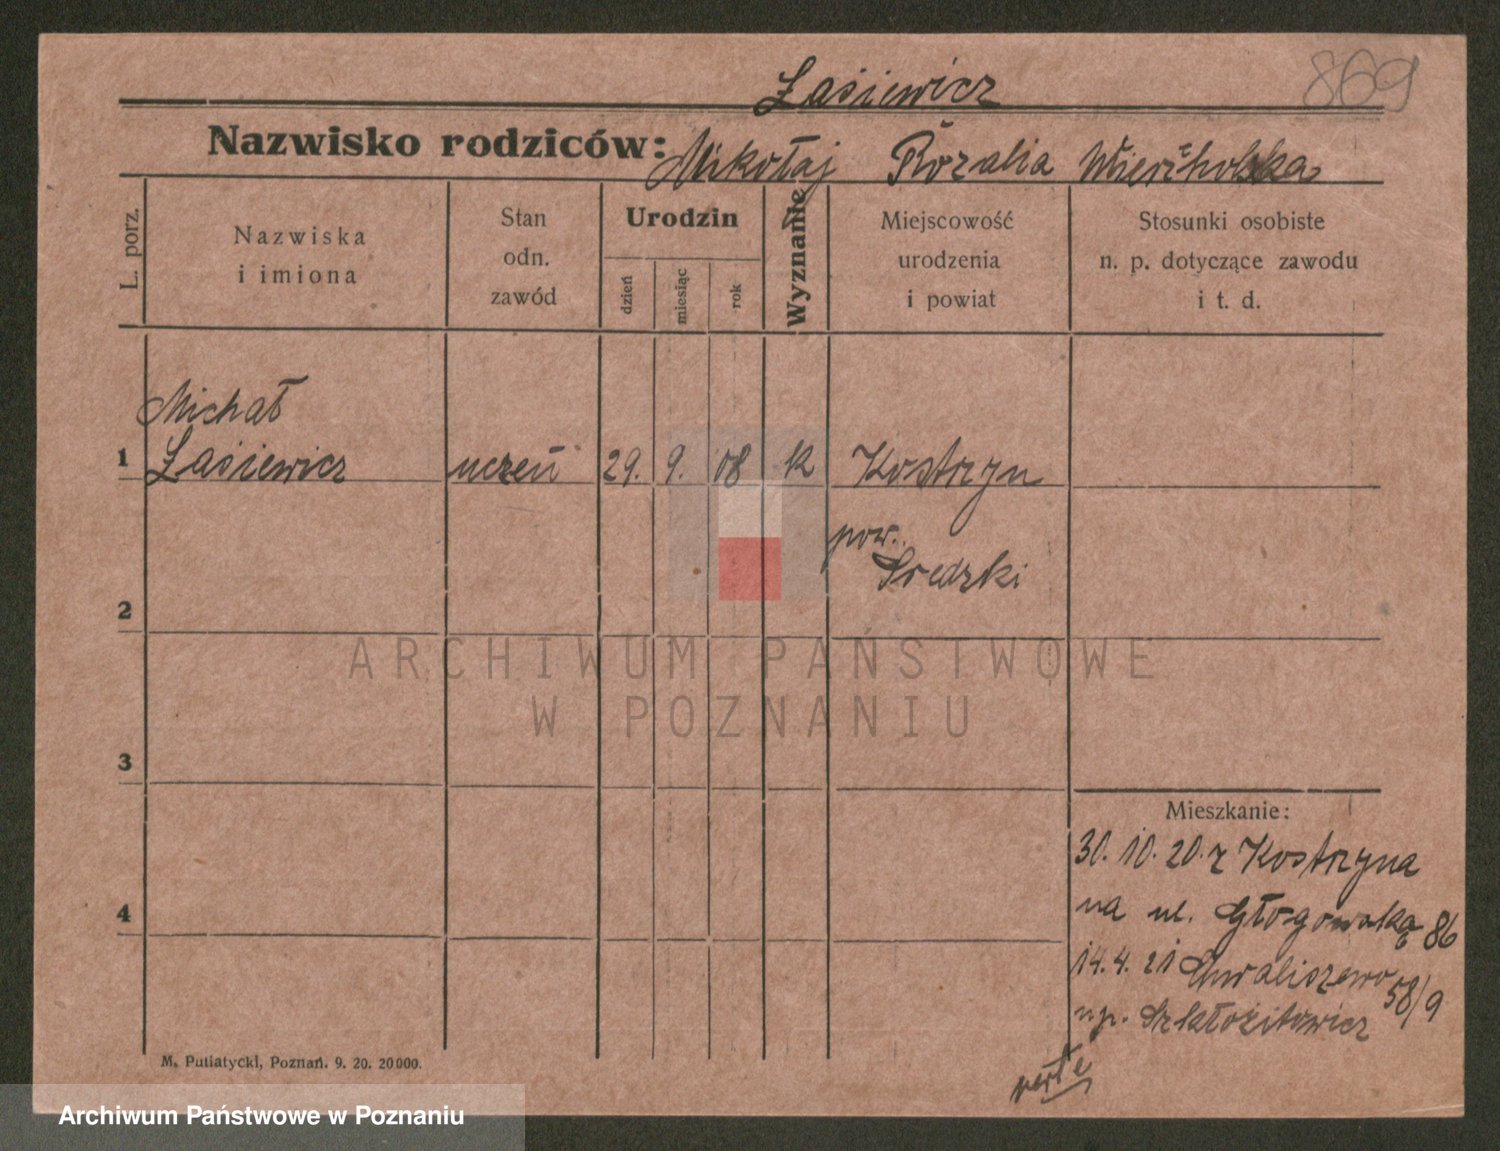 869
Łasiewicz
Nazwisko rodziców: Mikołaj Rozalia
L. porz.
Nazwiska i imiona
Stan odn. zawód
Urodzin
dzień
miesiąc
rok
Wyznanie
Miejscowość urodzenia i powiat
Stosunki osobiste n. p. dotyczące zawodu i t. d.
Michał
1 Łasiewicz uczeń 29. 9. 08 k Kostrzyn
pow.
Sredzki
2
3
4
ARCHIWUM PAŃSTWOWE
W POZNANIU
Mieszkanie:
30. 10. 20. z Kostrzyna
na ul. Głogowska 86
14. 4. 21 Chwaliszewo 58/9
n.p.
verte
M. Putiatycki, Poznań. 9. 20. 20000.
Archiwum Państwowe w Poznaniu